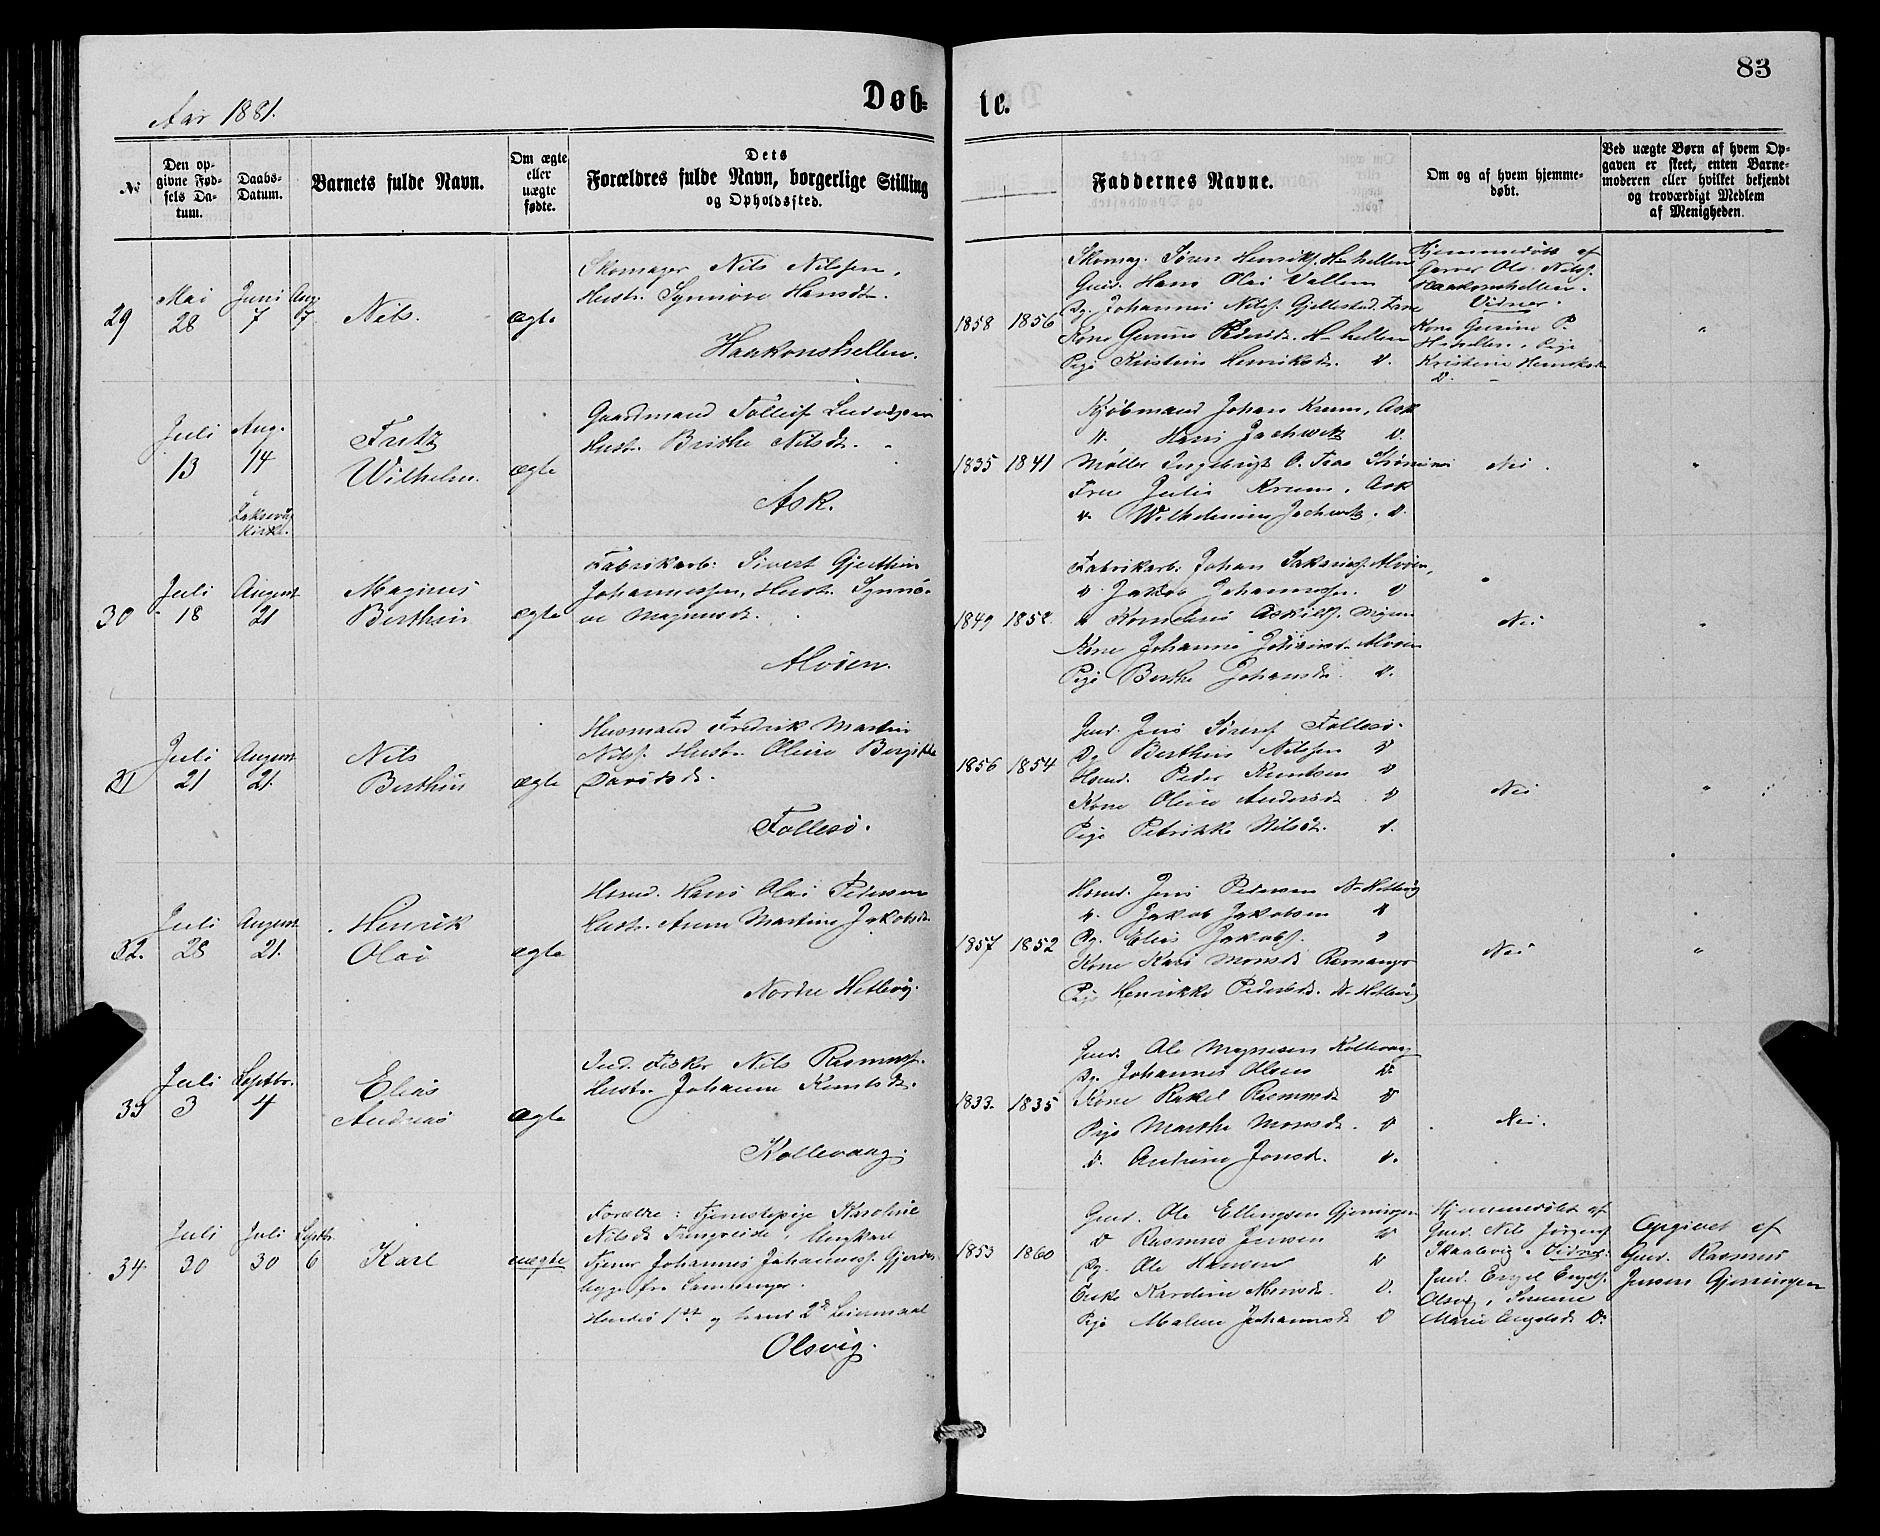 83
Aar 1881.
Døb-
te.
№
Den op-
givne Fød-
sels Da-
tum.
Daabs-
Datum.
Barnets fulde Navn.
Om ægte
eller
uægte
fødte.
Dets
Forældres fulde Navn, borgerlige Stilling
og Opholdssted.
Faddernes Navne.
Om og af hvem hjemme-
døbt.
Ved uægte Børn af hvem Op-
gaven er skeet, enten Barne-
moderen eller hvilket bekjendt
og troværdigt Medlem
af Menigheden.
29
Mai
28
Juni
7
Aug.
7
Nils.
ægte
Skomager Nils Nilssen,
Hustr. Synnøve Hansdt.
Haakonshellen.
1858 1856
Skomag. Søren Henriks. H-hellen
Gmd. Hans Olai Vallem
Pg. Johannes Nilss. Gjellested, Fane
Kone Gurine Pedersd. H-hellen
Pige Kristine Henriksdt. D.
Hjemmedøbt af
Garver Ole Nilss.
Haakonshellen.
Vidner.
Kone Gurine P.
H-hellen, Pige
Kristine Henriksdt
D.
"
Juli
13
Aug.
14
i
Laksevåg
Kirke.
Fritz
Wilhelm.
ægte
Gaardmand Tolleif Ludvigsen
Hustr. Brithe Nilsdt.
Ask.
1835 1841
Kjøbmand Johan Krum, Ask
D. Hans Jachwitz D.
Møller Ingebrigt O. Fras Strømsnes
Frue Julie Krum, Ask
D. Wilhelmine Jachwitz. D.
Nei.
"
30
Juli
18
August
21
Magnus
Berthin
ægte
Fabrikarb. Sivert Gjerthin
Johannessen, Hustr. Synnø-
ve Magnusdt.
Alvøen.
1849 1852.
Fabrikarb. Johan Sakrias. Alvøen,
D Jakob Johannessen D
D Kornelius Askilss. Mjøen
Kone Johanne Johannesd. Alvøen
Pige Berthe Johansdt. D.
Nei
"
31
Juli
21
August
21.
Nils
Berthin
ægte
Husmand Fredrik Martin
Nilss. Hustr. Oline Bergitte
Davidsdt.
Follesø.
1856 1854
Gmd. Jens Sørens. Follesø.
Pg. Berthin Nilssen D
Hsmd. Peder Knutsen D
Kone Oline Andersdt. D
Pige Petrikke Nilsdt. D.
Nei
"
32.
Juli
28
August
21.
Henrik
Olai
ægte
Hsmd. Hans Olai Pedersen
Hust. Anna Martine Jakobsdt
Nordre Hetlevig.
1857 1852
Hsmd. Jens Pedersen N-Hetlevig
D. Jakob Jakobsen D
Pg. Elias Jakobs. D
Kone Kari Monsdt Ramanger
Pige Henrikke Pedersdt. N-Hetlevig
Nei
"
33
Juli
3
Septbr.
4
Elias
Andreas
ægte
Ind. Fisker Nils Rasmuss.
Hustr. Johanne Knutsdt.
Kollevaag.
1833. 1835
Gmd. Ole Magnesen Kollevaag
Pg. Johannes Olsen D.
Kone Rakel Rasmusdt D
Pige Marthe Monsdt. D
D. Andrine Jonsd. D.
Nei.
34
Juli
30
Juli
30
Septbr.
6
Karl
uægte
Forældre: Tjenestepige Karoline
Nilsdt Tengereide, Ungkarl
Tjener Johannes Johanness. Gjerdes-
bygge fra Lambanger.
Hendes 1ste og hans 2d Leiermaal
Olsvig.
1853 1860
Gmd. Ole Ellingsen Gjeningen
D Rasmus Jensen D
Pg. Ole Hansen D
Enke Karoline Monsdt. D.
Pige Malene Johannesdt D
Hjemmedøbt af
Gmd. Nils Jørgens.
Skaalevig. Vidner.
Gmd. Engel Engels.
Olsvig,
Marie Engelsdt D.
Opgivet af
Gmd. Rasmus
Jensen Gjeningen